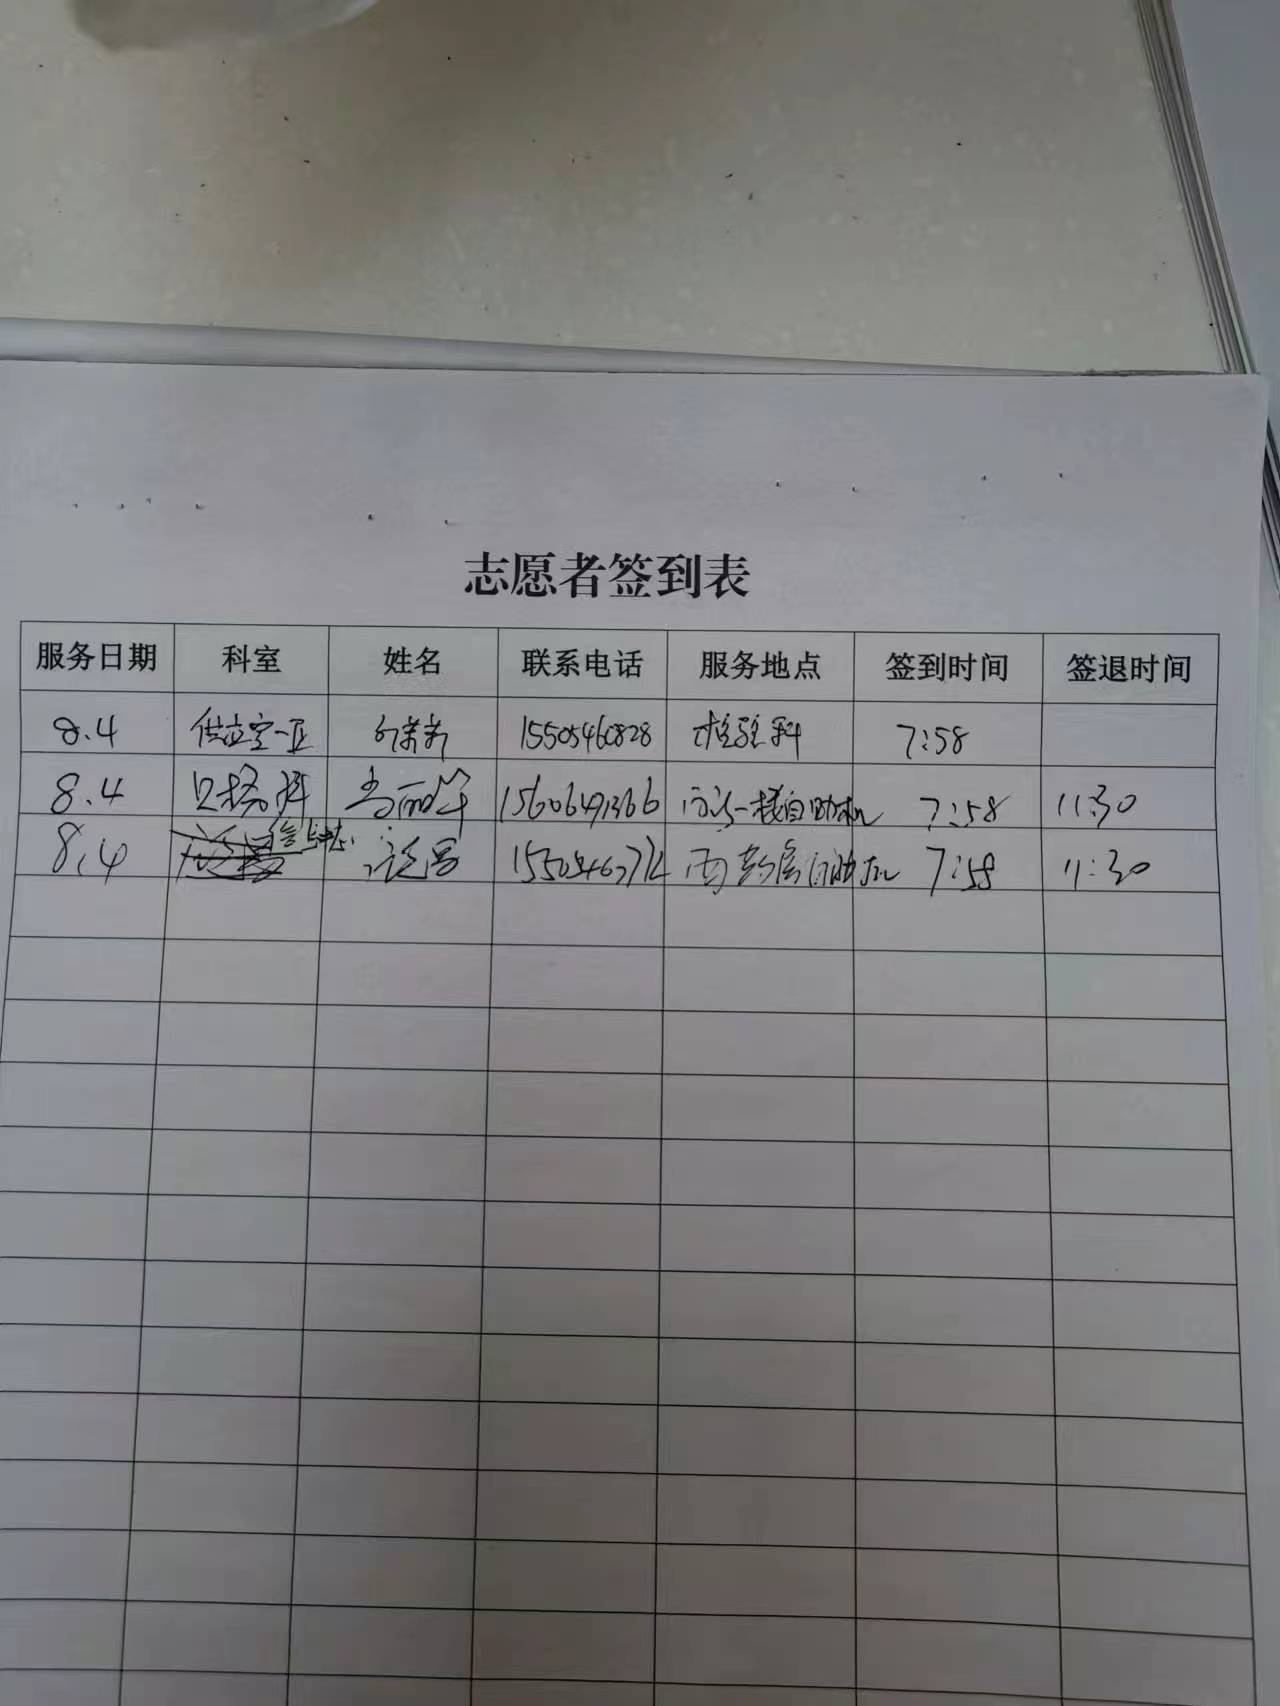 志愿者签到表
服务日期 科室 姓名 联系电话 服务地点 签到时间 签退时间
8.4 15505460828 检验科 7:58
8.4 口腔科 15606491366 一楼自助机 7:58 11:30
8.4 西药房自助机 7:58 11:30